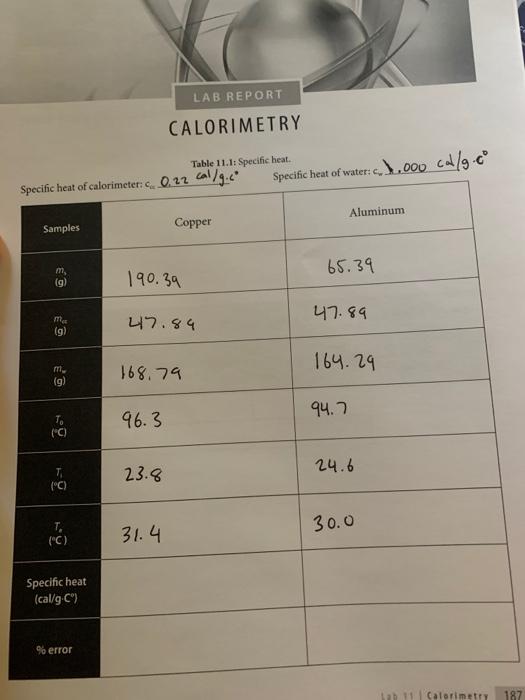 LAB REPORT
CALORIMETRY
Table 11.1: Specific heat.
Specific heat of calorimeter: c 0.22 cal/g·c° Specific heat of water: c 1.000 cal/g·c°
Samples Copper Aluminum
m (g) 190.3g 65.3g
m (g) 47.8g 47.8g
m (g) 168.7g 164.2g
T (°C) 96.3 94.7
T (°C) 23.8 24.6
T (°C) 31.4 30.0
Specific heat
(cal/g·C°)
% error
Lab 11 | Calorimetry 187